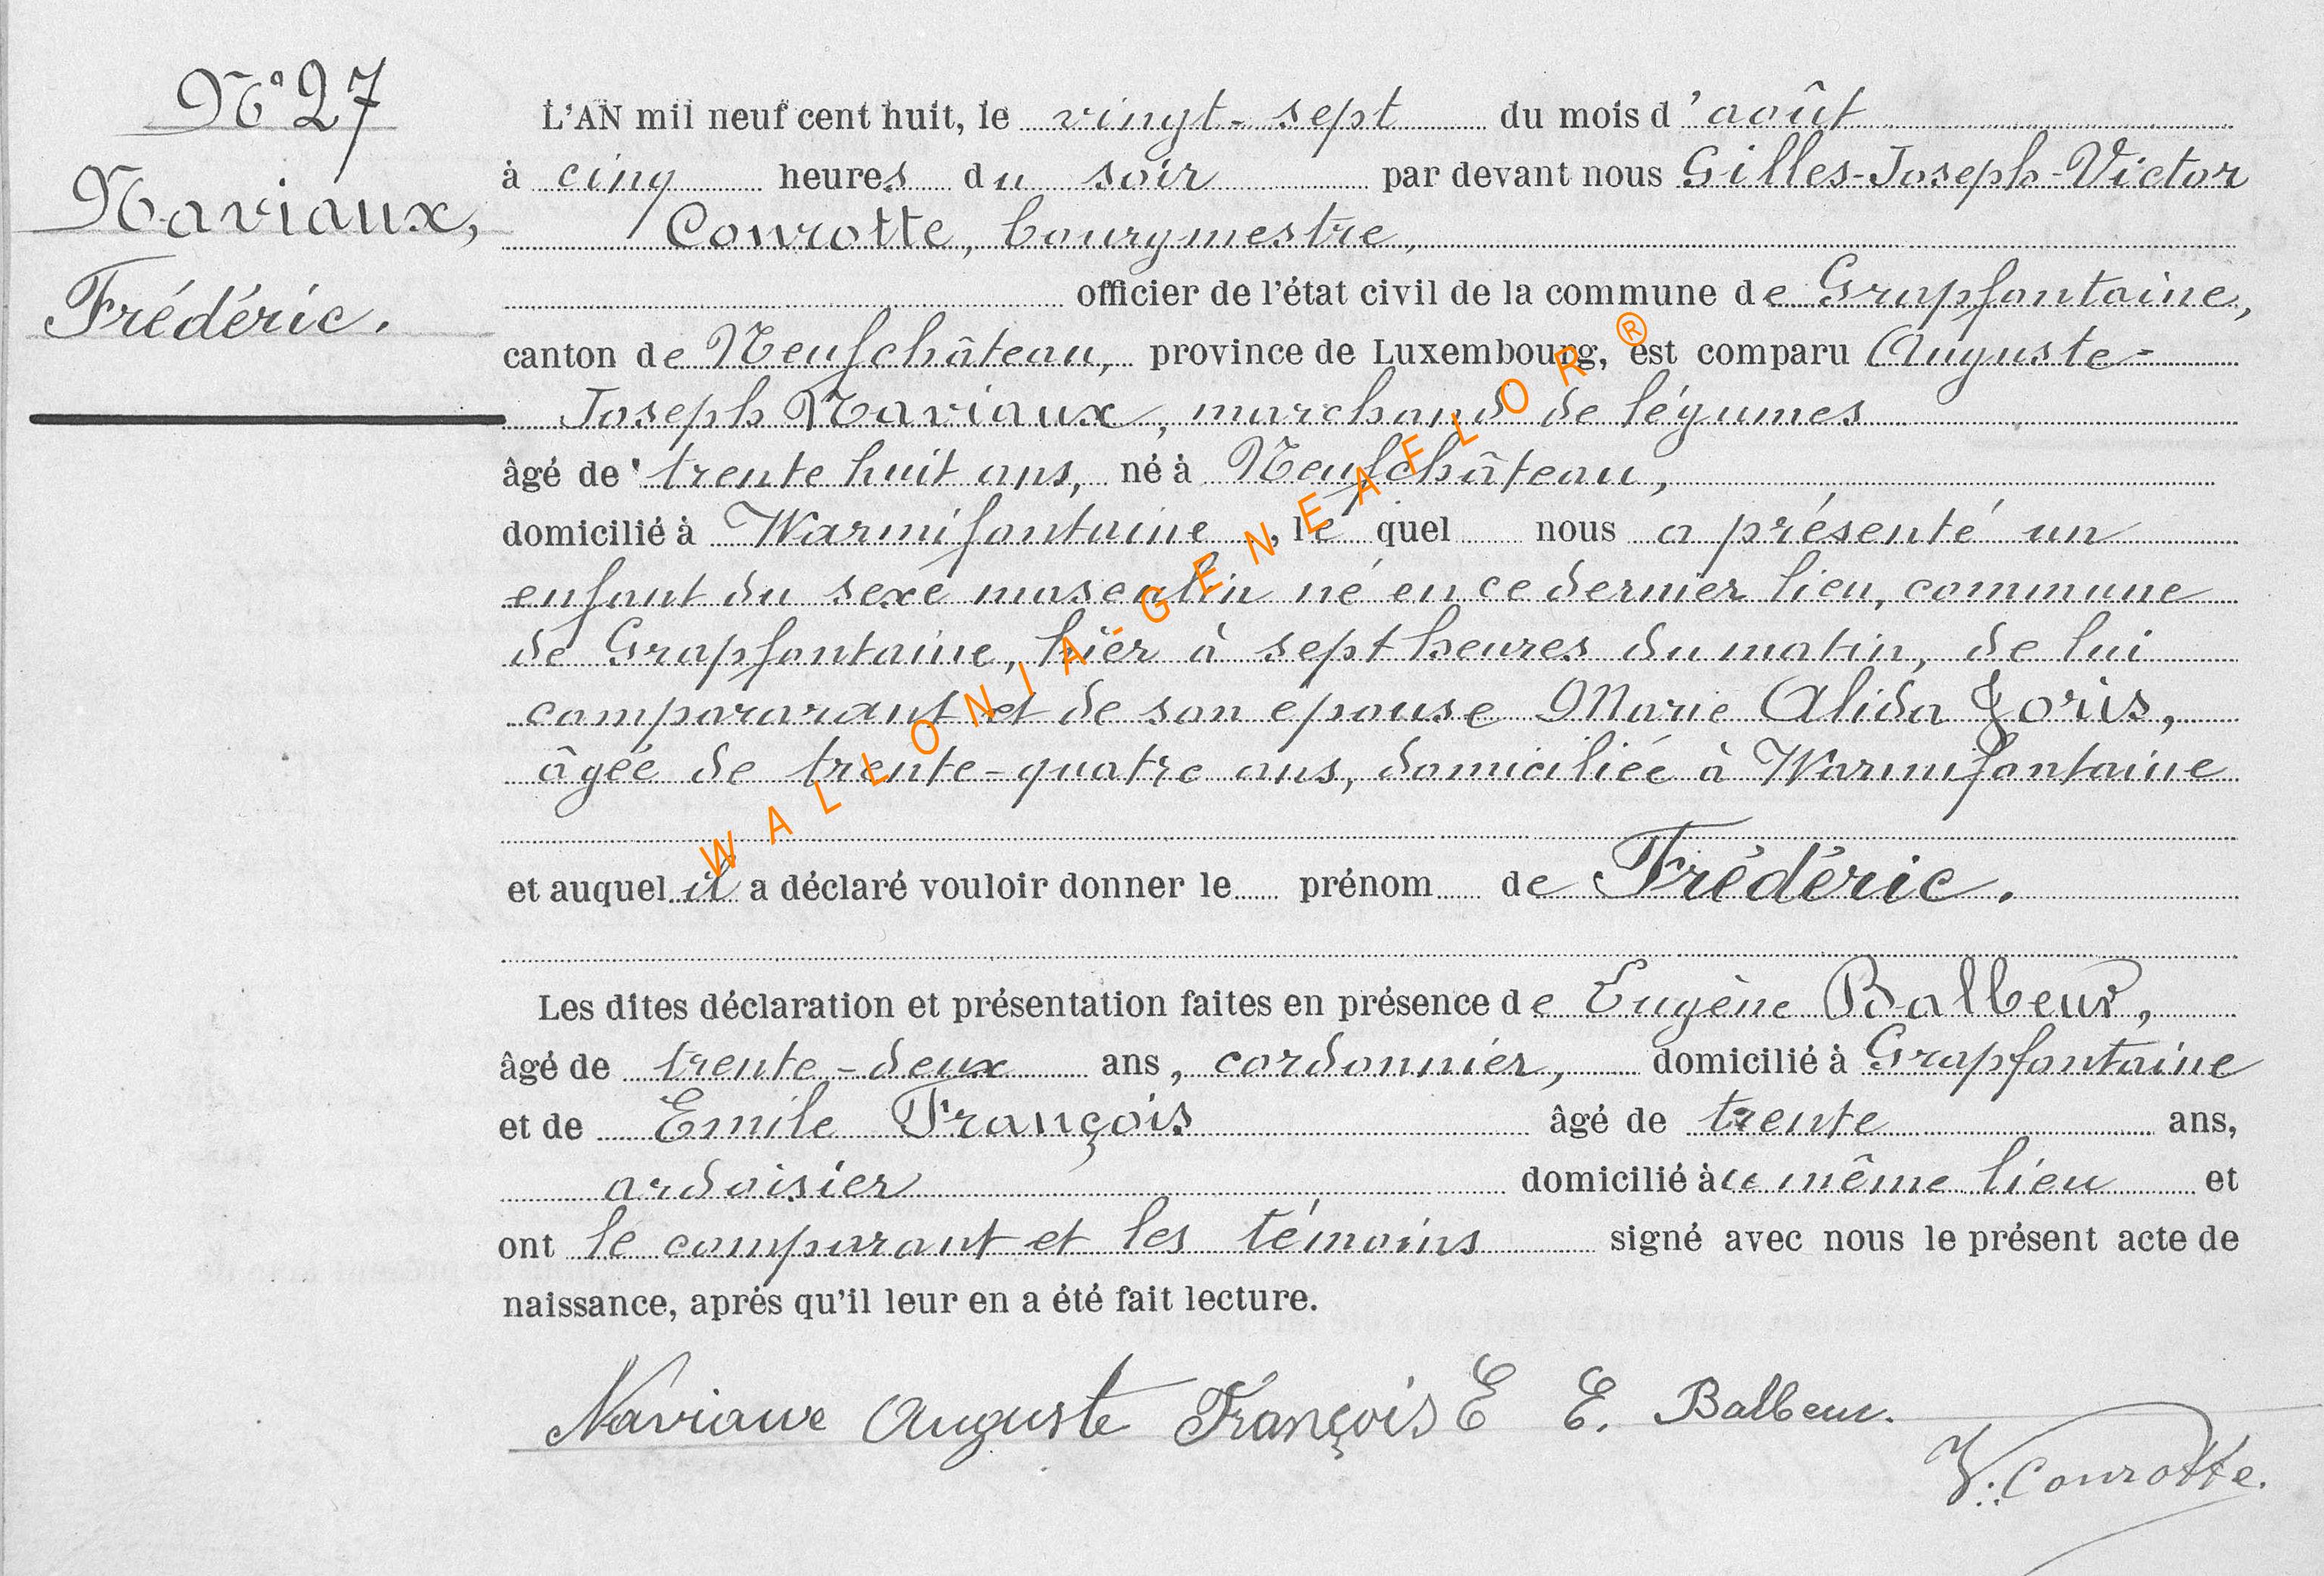 N° 27
Naviaux,
Frédéric.
L'AN mil neuf cent huit, le vingt-sept du mois d'août
à cinq heures du soir par devant nous Gilles-Joseph-Victor
Conrotte, bourgmestre,
officier de l'état civil de la commune de Grapfontaine,
canton de Neufchâteau, province de Luxembourg, est comparu Auguste-
Joseph Naviaux, marchand de légumes
âgé de trente huit ans, né à Neufchâteau,
domicilié à Warmifontaine, le quel nous a présenté un
enfant du sexe masculin né en ce dernier lieu, commune
de Grapfontaine, hier à sept heures du matin, de lui
compararant et de son épouse Marie Alida Joris,
âgée de trente-quatre ans, domiciliée à Warmifontaine
et auquel il a déclaré vouloir donner le prénom de Frédéric.
Les dites déclaration et présentation faites en présence de Eugène Balbeur,
âgé de trente-deux ans, cordonnier, domicilié à Grapfontaine
et de Emile François âgé de trente ans,
ardoisier domicilié àu même lieu et
ont le comparant et les témoins signé avec nous le présent acte de
naissance, aprés qu'il leur en a été fait lecture.
Naviaux Auguste François E E. Balbeur.
V. Conrotte.
WALLONIA-GENEAFLOR ®